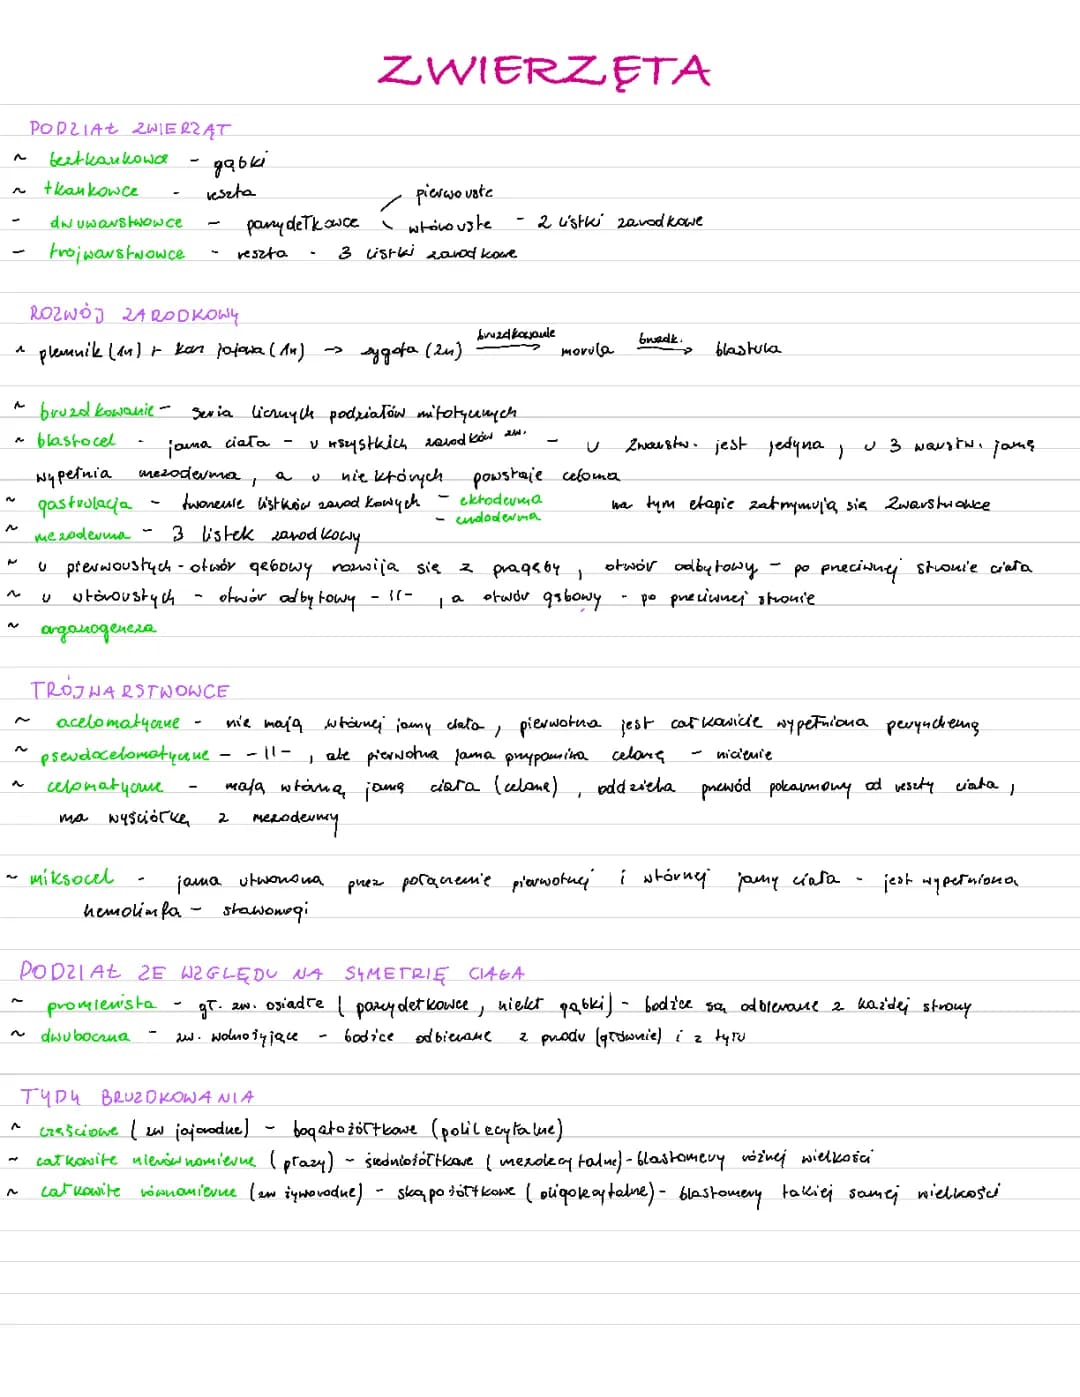 ZWIERZĘTA
PODZIAŁ ZWIERZĄT
~ beztkankowce - gąbki
~ tkankowce - reszta
pierwouste
- dwuwarstwowce - parzydełkowce wtórouste - 2 listki zarodkowe
- trójwarstwowce - reszta - 3 listki zarodkowe
ROZWÓJ ZARODKOWY
~ plemnik (1n) + kom jajowa (1n) → zygota (2n) bruzdkowanie → morula bruzdk. → blastula
~ bruzdkowanie - seria licznych podziałów mitotycznych
~ blastocel - jama ciała - u wszystkich zarodków zw. - u 2warstw. jest jedyna, u 3 warstw. jamę
wypełnia mezoderma, a u niektórych powstaje celoma
~ gastrulacja - tworzenie listków zarodkowych - ektoderma na tym etapie zatrzymują się 2warstwowce
- endoderma
~ mezoderma - 3 listek zarodkowy
~ u pierwoustych - otwór gębowy rozwija się z pragęby, otwór odbytowy - po przeciwnej stronie ciała
~ u wtóroustych - otwór odbytowy - 11-, a otwór gębowy - po przeciwnej stronie
~ organogeneza
TRÓJWARSTWOWCE
~ acelomatyczne - nie mają wtórnej jamy ciała, pierwotna jest całkowicie wypełniona perynchemą
~ pseudocelomatyczne - - 11-, ale pierwotna jama przypomina celomę - nicienie
~ celomatyczne - mają wtórną jamę ciała (celomę), oddziela przewód pokarmowy od reszty ciała,
ma wyściółkę z mezodermy
~ miksocel - jama utworzona przez połączenie pierwotnej i wtórnej jamy ciała - jest wypełniona
hemolimfą - stawonogi
PODZIAŁ ZE WZGLĘDU NA SYMETRIĘ CIAŁA
~ promienista - gł. zw. osiadłe (parzydełkowce, niekt gąbki) - bodźce są odbierane z każdej strony
~ dwuboczna - zw. wolnożyjące - bodźce odbierane z przodu (głównie) i z tyłu
TYPY BRUZDKOWANIA
~ częściowe (zw jajorodne) - bogatożółtkowe (polilecytalne)
~ całkowite nierównomierne (płazy) - średniożółtkowe (mezolecytalne) - blastomery różnej wielkości
~ całkowite równomierne (zw żyworodne) - skąpożółtkowe (oligolecytalne) - blastomery takiej samej wielkości